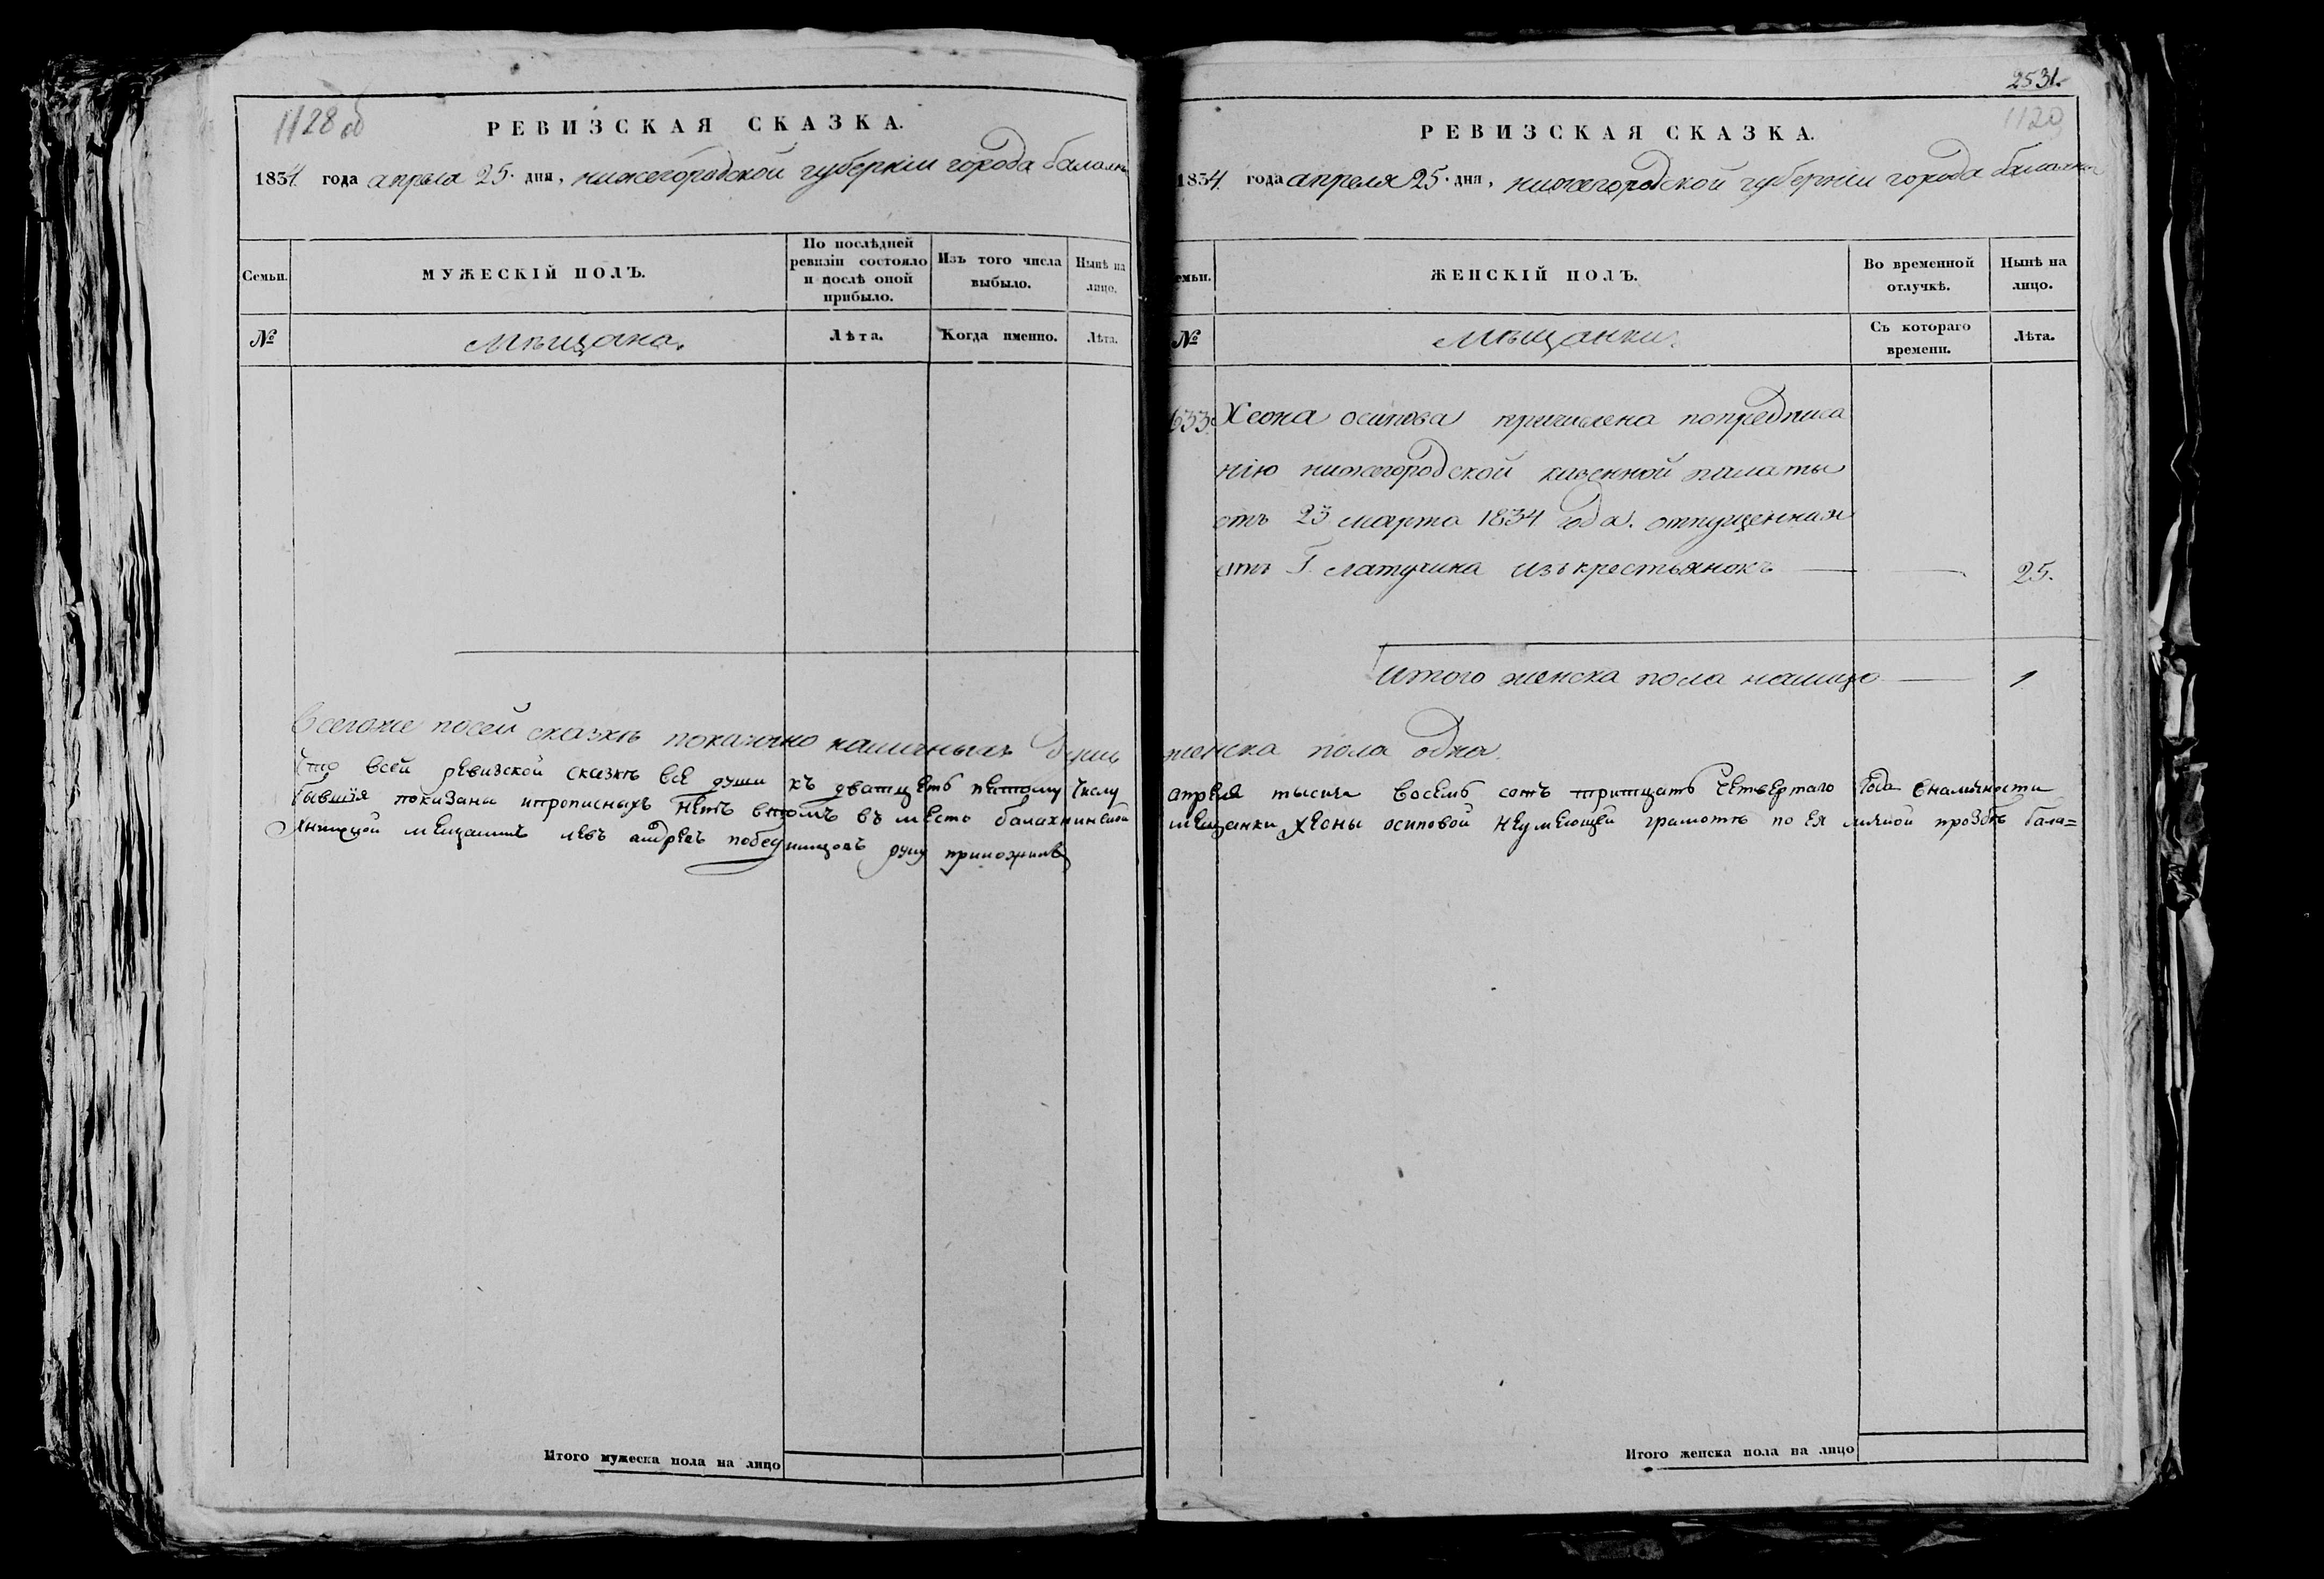 1128 об
РЕВИЗСКАЯ СКАЗКА.
1834. года апреля 25. дня, нижегородской губернии города балахны
Семьи.
МУЖЕСКІЙ ПОЛЪ.
По послѣдней ревизіи состояло и послѣ оной прибыло.
Изъ того числа выбыло.
Нынѣ на лицо.
№
Мѣщана.
Лѣта.
Когда именно.
Лѣта.
Всегоже посей сказкѣ показано наличныхъ душъ
Что всей ревизской сказкѣ все души къ дватцеть пятому числу
бывшія показаны ипрописныхъ нетъ втомъ въ место балахнинской
янинской мещанинъ левъ андреевъ руку приложилъ
2531.
1129
РЕВИЗСКАЯ СКАЗКА.
1834. года апреля 25. дня, нижегородской губерніи города балахны
Семьи.
ЖЕНСКІЙ ПОЛЪ.
Во временной отлучкѣ.
Нынѣ на лицо.
№
Мѣщанки.
Съ котораго времени.
Лѣта.
633. Хеона осипова причислена попредписа
нію нижегородской казенной палаты
отъ 23 марта 1834 года. отпущенная
отъ Г. латухина изъ крестьянокъ — — 25.
Итого женска пола налицо — 1
женска пола одна.
апреля тысяча восемь сотъ тритцать четвертаго года вналичности
мещанки хеоны осиповой неумеющей грамоте по ея личной прозбѣ бала=
Итого мужеска пола на лицо
Итого женска пола на лицо